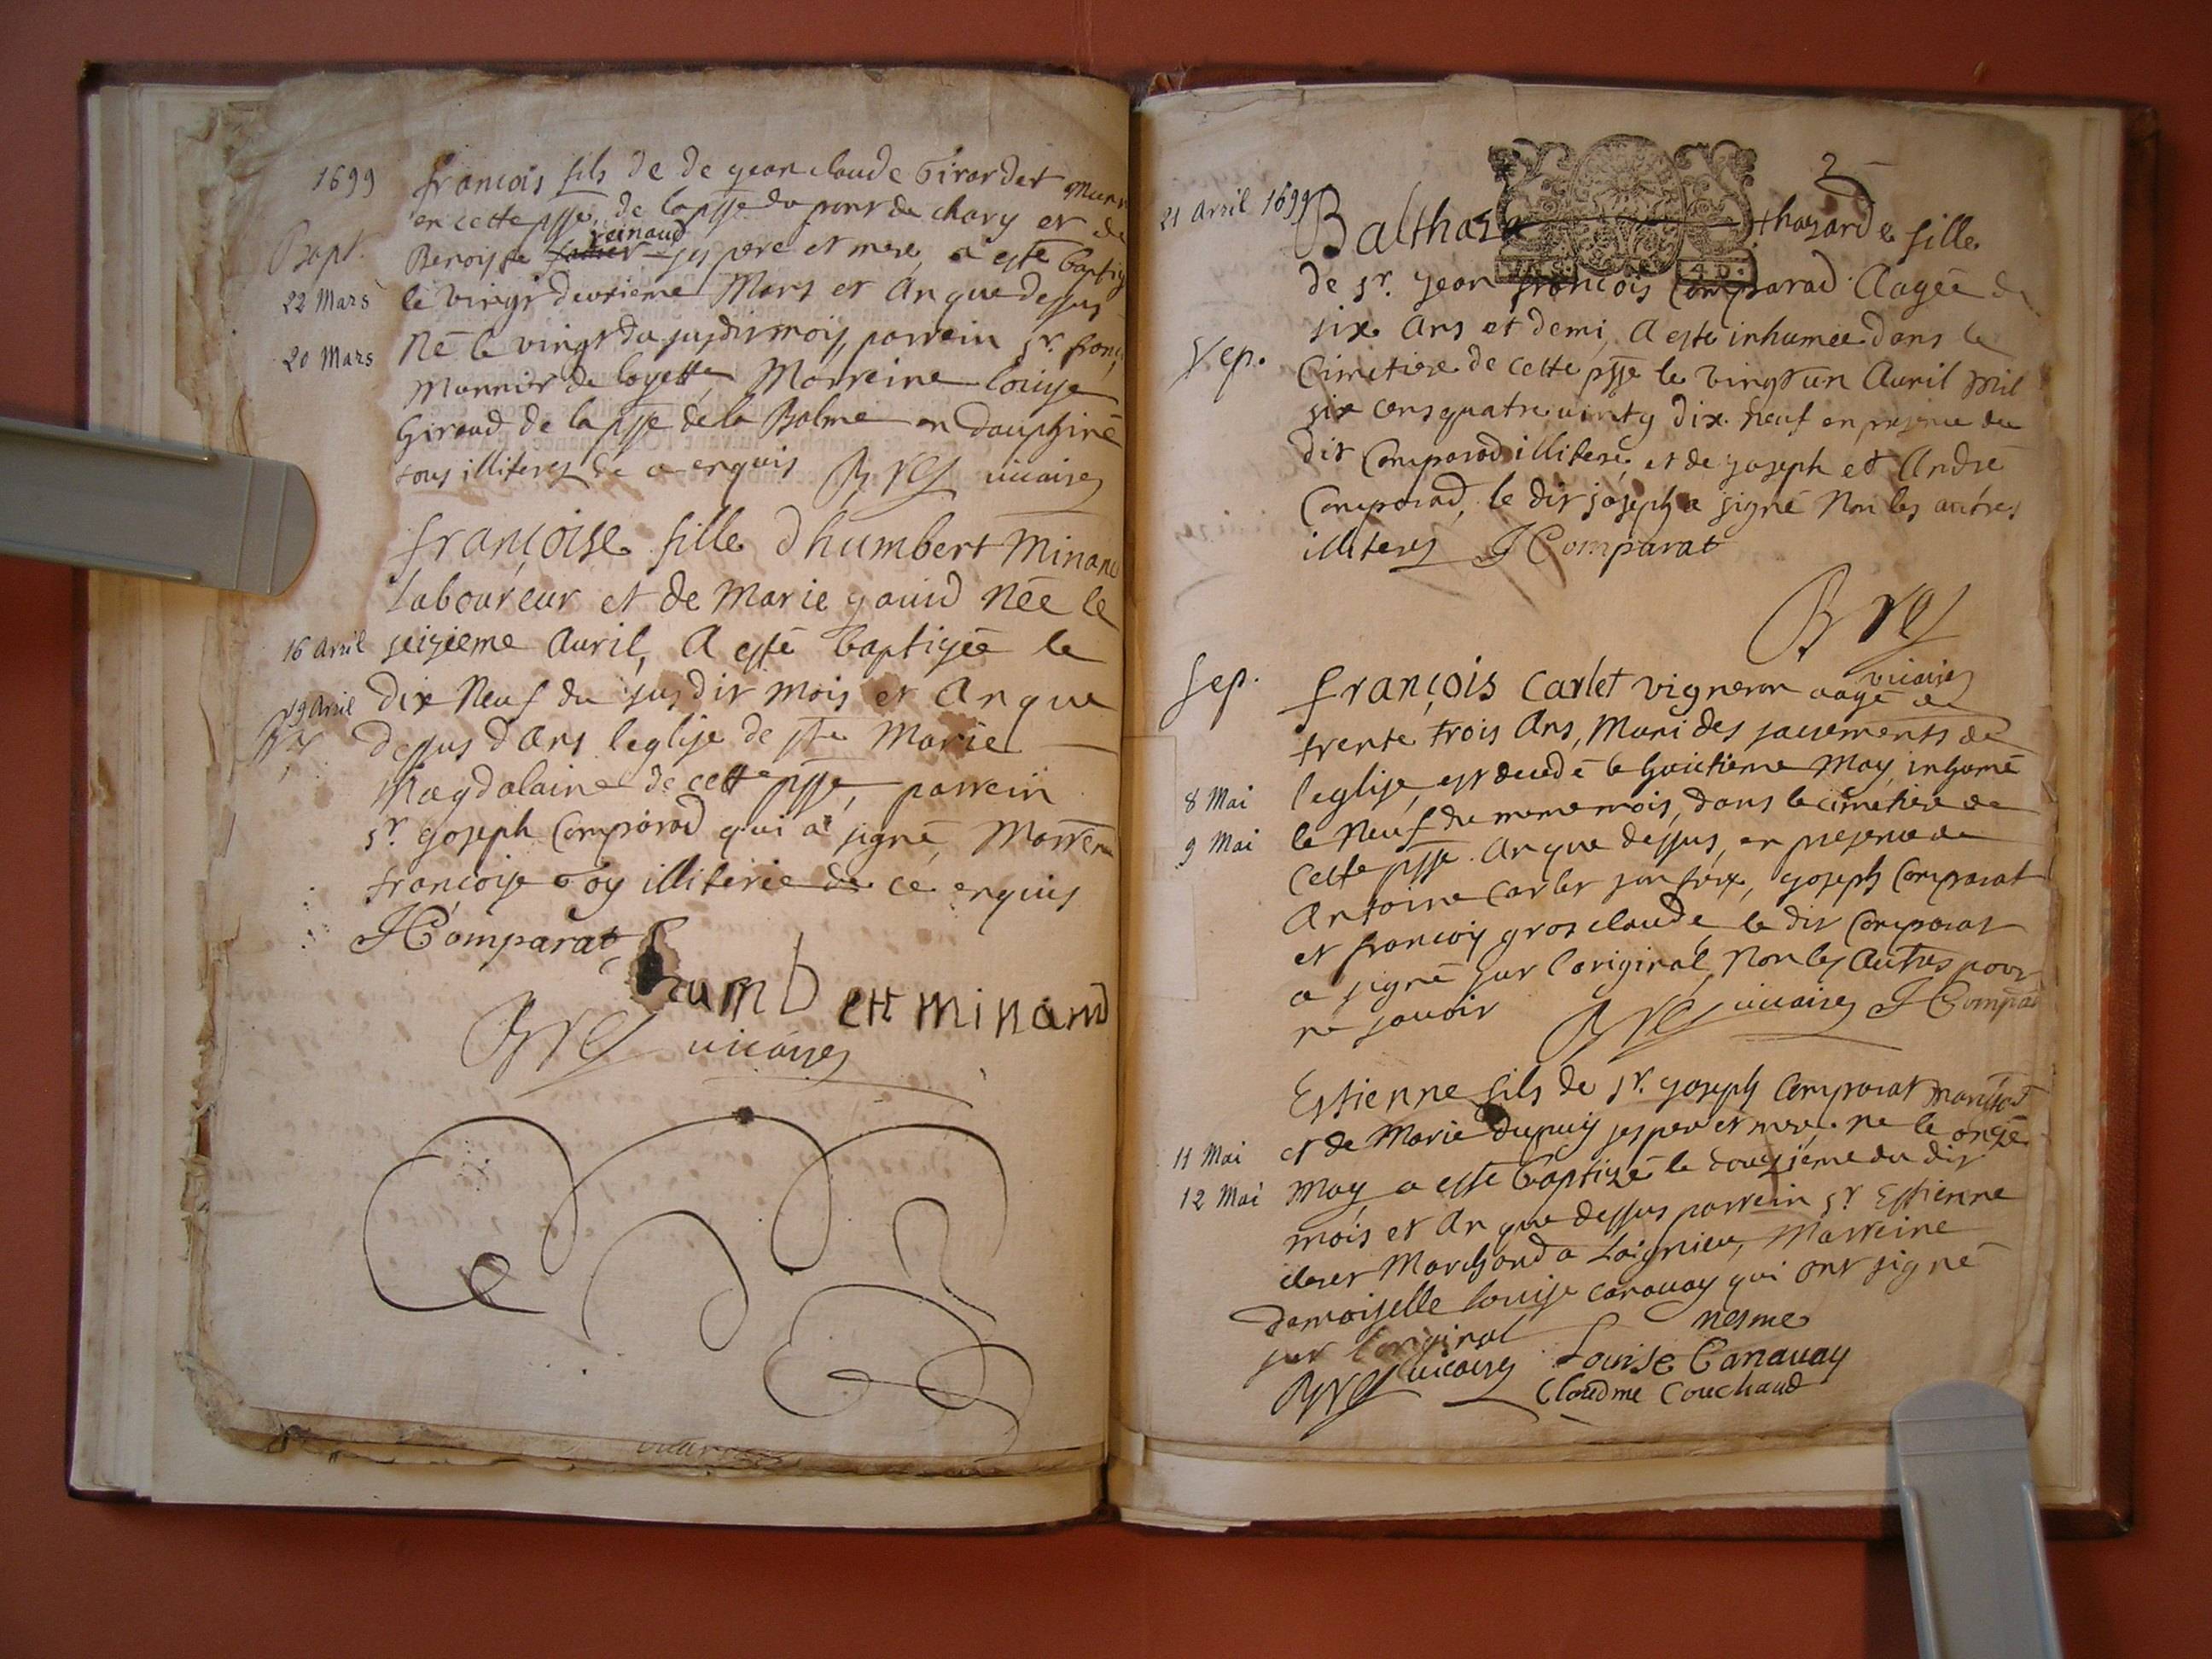 1699
françois fils de de jean claude Girardet
en cette psse. de la psse du pont de chary et de
Bapt.
reinaud
Benoiste ses pere et mere, a esté baptisé
22 Mars
le vingt deuxieme Mars et An que dessus
20 Mars
Né le vingt du susdit mois, parrein sr. franç
Munnier de loyette, Marreine louise
Giroud de la psse de la Balme en dauphiné
tous illiteres de ce enquis vicaires
françoise fille d'humbert Minand
Laboureur et de Marie gouid Née le
16 Avril
seizieme Auril, A esté baptisée le
19 Avril
dix Neuf du susdit mois et An que
dessus dans leglise de ste Marie
Magdalaine de cette psse, parrein
sr joseph Comparad qui a signé, Marreine
françoise Goy illiterée de ce enquis
J Comparat
humbert minand
vicaires
2
21 Avril 1699
Balthaza thazarde fille
de sr. jean françois Comparad Aagée de
six Ans et demi, A esté inhumée dans le
Sep.
Cimetiere de cette psse le vingt un Auril Mil
six cens quatre vints dix neuf en presence du
dit Comparad illiteré, et de joseph et André
Comparad, le dit joseph a signé Non les autres
illiteres J Comparat
vicaires
Sep.
françois Carlet vigneron aagé de
trente trois Ans, Muni des sacrements de
8 Mai
leglise, est decedé le huictieme May, inhumé
9 Mai
le Neuf du meme mois, dans le cimetiere de
cette psse. An que dessus, en presence de
Antoine Carlet son frere, joseph Comparat
et françois gros claude, le dit Comparat
a signé sur loriginal, Non les Autres pour
ne savoir vicaires J Comparat
Estienne fils de sr. joseph Comparat marchat
11 Mai
et de Marie dupuis ses pere et mere. né le onze
12 Mai
May, a esté baptizé le douzieme du dit
mois et An que dessus parrein sr Estienne
Marchand a Laignieu, Marreine
demoiselle louise canauay qui ont signé
sur loriginal nesme
vicaires Louise Canauay
Cloudme Couchaud